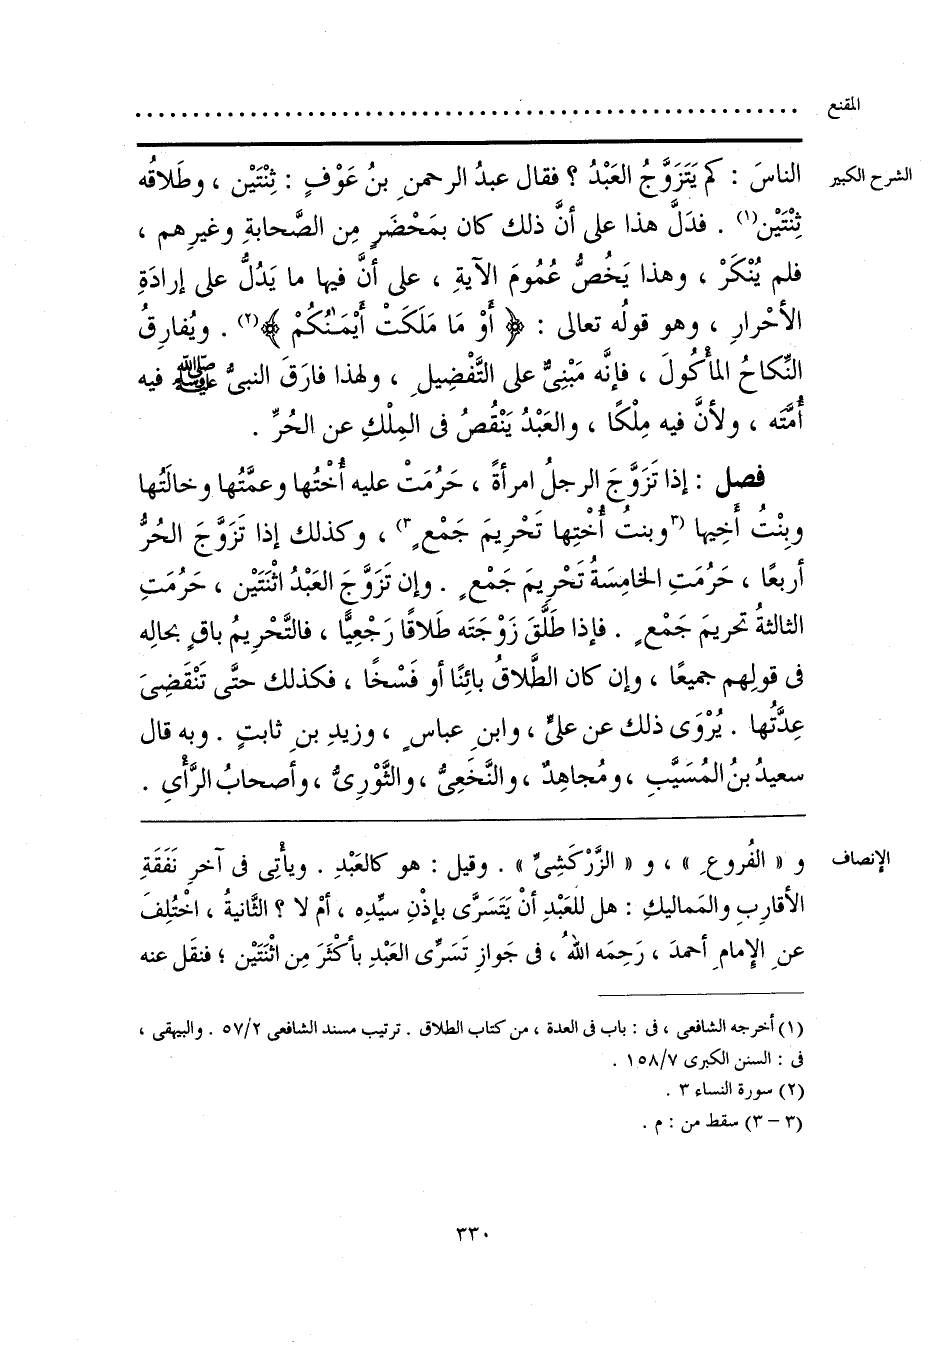 المقنع ..........................................................
الشرح الكبير
الناسَ : كم يَتَزَوَّجُ العَبْدُ ؟ فقال عبدُ الرحمنِ بنُ عَوْفٍ : ثِنْتَيْن ، وطَلاقُه
ثِنْتَيْن(١) . فدَلَّ هذا على أنَّ ذلك كان بمَحْضَرٍ مِن الصَّحابةِ وغيرِهم ،
فلم يُنْكَرْ ، وهذا يَخُصُّ عُمُومَ الآيةِ ، على أنَّ فيها ما يَدُلُّ على إرادَةِ
الأحْرارِ ، وهو قولُه تعالى : ﴿ أَوْ مَا مَلَكَتْ أَيْمَـٰنُكُمْ ﴾(٢) . ويُفارِقُ
النِّكاحُ المأْكُولَ ، فإنَّه مَبْنِىٌّ على التَّفْضِيلِ ، ولهذا فارَقَ النبىُّ ﷺ فيه
أُمَّتَه ، ولأنَّ فيه مِلْكًا ، والعَبْدُ يَنْقُصُ فى المِلْكِ عن الحُرِّ .
فصل : إذا تَزَوَّجَ الرجلُ امرأةً ، حَرُمَتْ عليه أُخْتُها وعمَّتُها وخالَتُها
وبِنْتُ أَخِيها (٣وبنتُ أُخْتِها تَحْرِيمَ جَمْعٍ٣) ، وكذلك إذا تَزَوَّجَ الحُرُّ
أربعًا ، حَرُمَتِ الخامِسَةُ تَحْرِيمَ جَمْعٍ . وإن تَزَوَّجَ العَبْدُ اثْنَتَيْن ، حَرُمَتِ
الثالثةُ تحريمَ جَمْعٍ . فإذا طَلَّقَ زَوْجَتَه طَلاقًا رَجْعِيًّا ، فالتَّحْرِيمُ باقٍ بحالِه
فى قولِهم جميعًا ، وإن كان الطَّلاقُ بائِنًا أو فَسْخًا ، فكذلك حتَّى تَنْقَضِىَ
عِدَّتُها . يُرْوَى ذلك عن علىٍّ ، وابنِ عباسٍ ، وزيدِ بنِ ثابتٍ . وبه قال
سعيدُ بنُ المُسَيَّبِ ، ومُجاهِدٌ ، والنَّخَعِىُّ ، والثَّوْرِىُّ ، وأصحابُ الرَّأْىِ .
الإنصاف
و « الفُروعِ » ، و « الزَّرْكَشِىِّ » . وقيل : هو كالعَبْدِ . ويأْتِى فى آخرِ نَفَقَةِ
الأقارِبِ والمَماليكِ : هل للعَبْدِ أنْ يَتَسَرَّى بإذْنِ سيِّدِه ، أمْ لا ؟ الثَّانيةُ ، اخْتُلِفَ
عنِ الإِمامِ أحمدَ ، رَحِمَه اللهُ ، فى جَوازِ تَسَرِّى العَبْدِ بأكْثَرَ مِن اثْنَتَيْن ؛ فنقَل عنه
(١) أخرجه الشافعى ، فى : باب فى العدة ، من كتاب الطلاق . ترتيب مسند الشافعى ٥٧/٢ . والبيهقى ،
فى : السنن الكبرى ١٥٨/٧ .
(٢) سورة النساء ٣ .
(٣ – ٣) سقط من : م .
٣٣٠